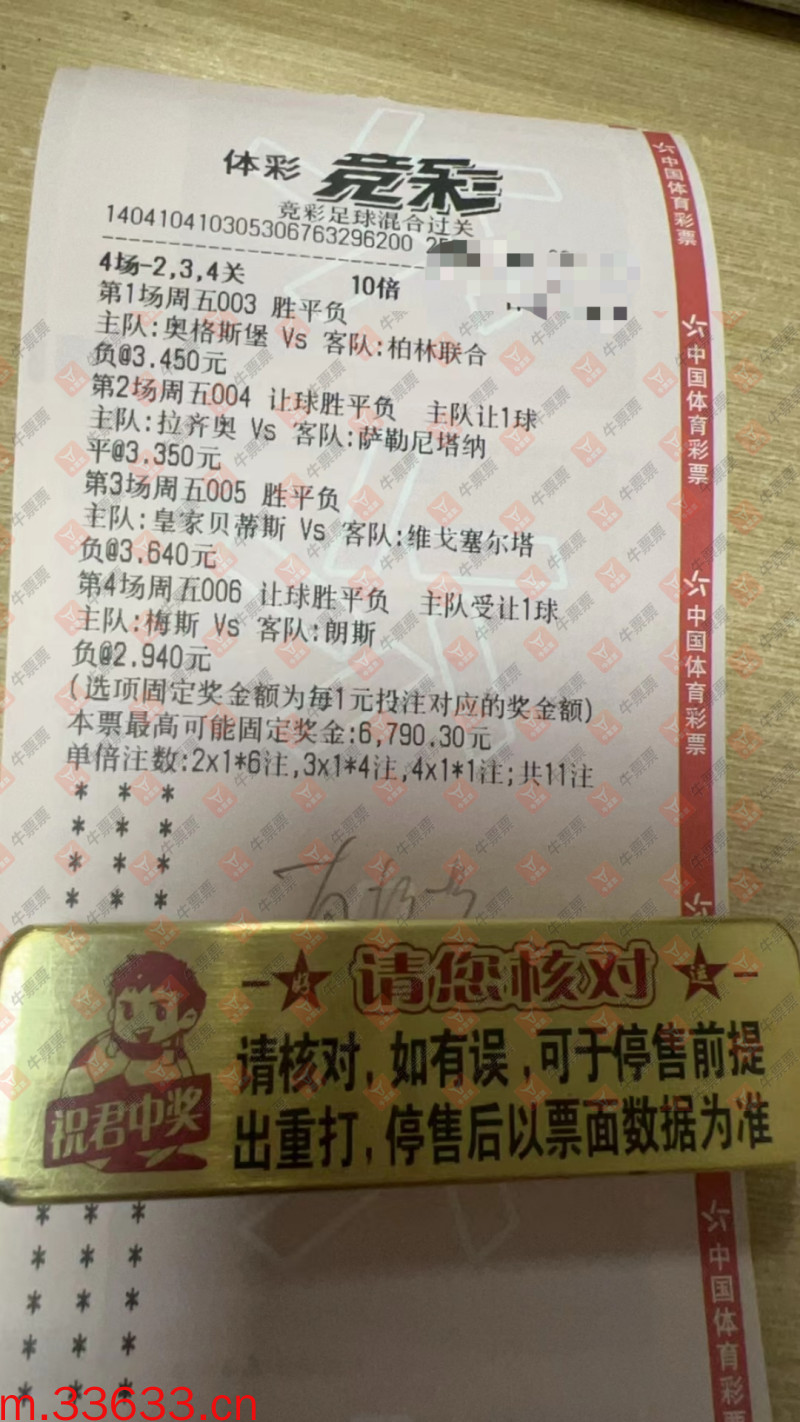 体彩 竞彩
竞彩足球混合过关
140410410305306763296200
4场-2,3,4关 10倍
第1场周五003 胜平负
主队:奥格斯堡 Vs 客队:柏林联合
负@3.450元
第2场周五004 让球胜平负 主队让1球
主队:拉齐奥 Vs 客队:萨勒尼塔纳
平@3.350元
第3场周五005 胜平负
主队:皇家贝蒂斯 Vs 客队:维戈塞尔塔
负@3.640元
第4场周五006 让球胜平负 主队受让1球
主队:梅斯 Vs 客队:朗斯
负@2.940元
(选项固定奖金额为每1元投注对应的奖金额)
本票最高可能固定奖金:6,790.30元
单倍注数:2x1*6注,3x1*4注,4x1*1注;共11注
* * *
* * *
* * *
* * *
好 请您核对 运
请核对,如有误,可于停售前提
出重打,停售后以票面数据为准
祝君中奖
* * *
* * *
* * *
* * *
* * *
中国体育彩票
中国体育彩票
中国体育彩票
中国体育彩票
牛票票
m.33633.cn